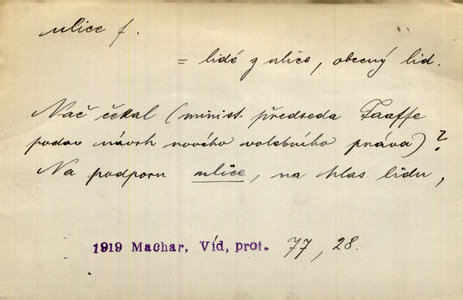 ulice f.
= lidé z ulice, obecný lid.
Nač čekal (minist. předseda Taaffe
podav návrh nového volebního práva)?
Na podporu ulice, na hlas lidu,
1919 Machar, Víd, prof. 77, 28.